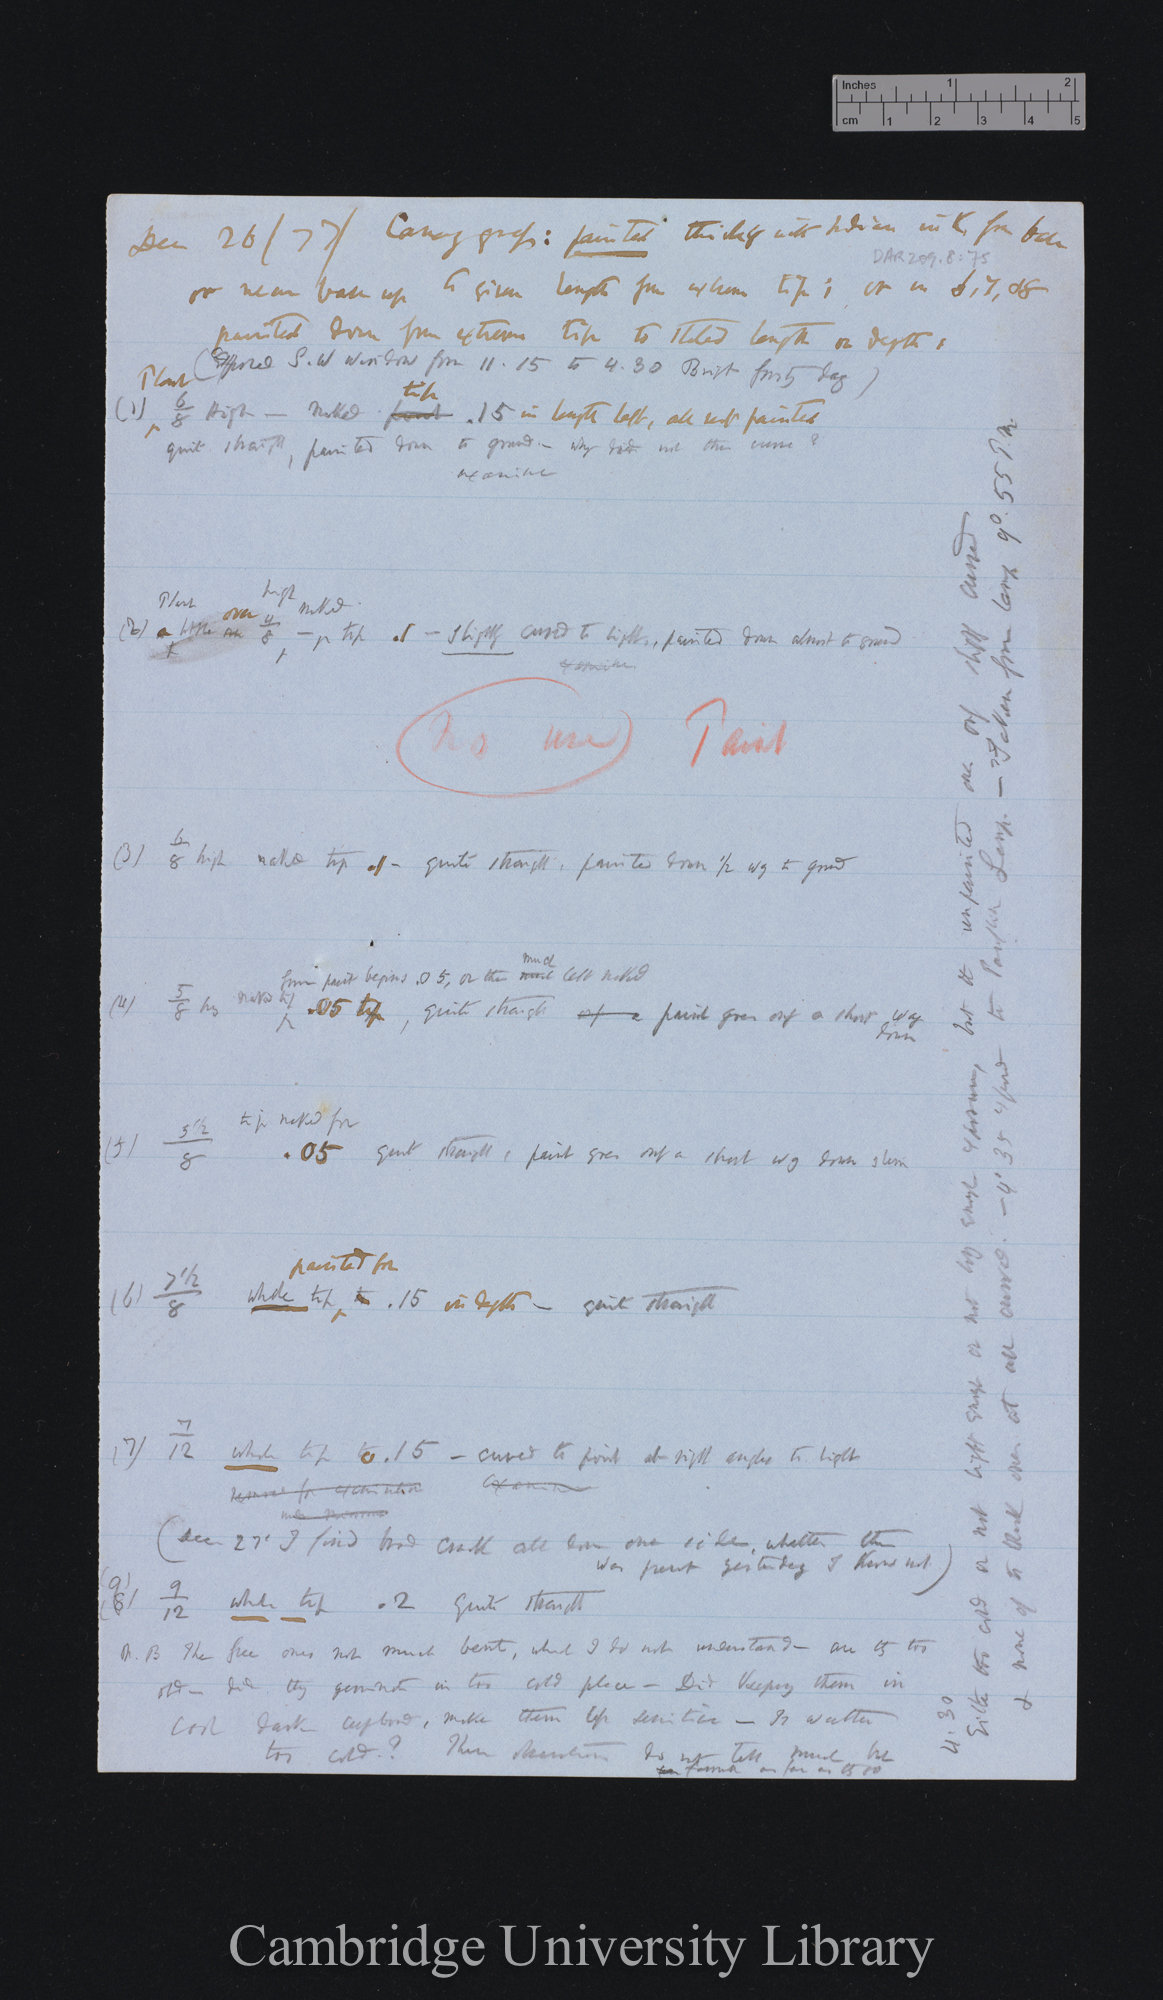 Inches 1 2
cm 1 2 3 4 5
Dec 26 / 77/ Canary grass: painted thickly with Indian ink from base
DAR 209.8:75
or near base up to given length from extreme tip; or in 6, 7, 8
painted down from extreme tip to stated length or depth.
(Exposed S.W window from 11.15 to 4.30 Bright frosty day)
Plant
(1) 6/8 High — Naked tip .15 in length left, all rest painted
quite straight, painted down to ground — why did not this curve?
examine
Plant high naked
(2) a little over 4/8 — tip .1 — slightly curved to light, painted down almost to ground
examine
No use Paint
(3) 6/8 high naked tip .1 — quite straight, painted down 1/2 way to ground
paint begins .05, or this much left naked
(4) 5/8 naked tip .05 tip, quite straight paint goes only a short way
down
tip naked for
(5) 5 1/2/8 .05 quite straight, paint goes only a short way down stem
painted for
(6) 7 1/2/8 whole tip to .15 in depth — quite straight
(7) 7/12 whole tip to .15 — curved to point at right angles to light
examine
(Dec 27' I find bad crack all down one side, whether this
was present yesterday I know not)
(9)
(8) 9/12 whole tip .2 quite straight
N.B The free ones not much bent, which I do not understand — are they too
old — did they germinate in too cold place — Did keeping them in
cool dark cupboard, make them less sensitive — Is weather
too cold? These observations do not tell much but
as far as they go
4.30
Either too cold or not light enough or not long enough exposure, but the unpainted are only slightly curved
& none of the black ones at all curved. — 4' 35 exposed to Paraffin Lamp. — Taken from lamp 9°. 55 P.m
Cambridge University Library